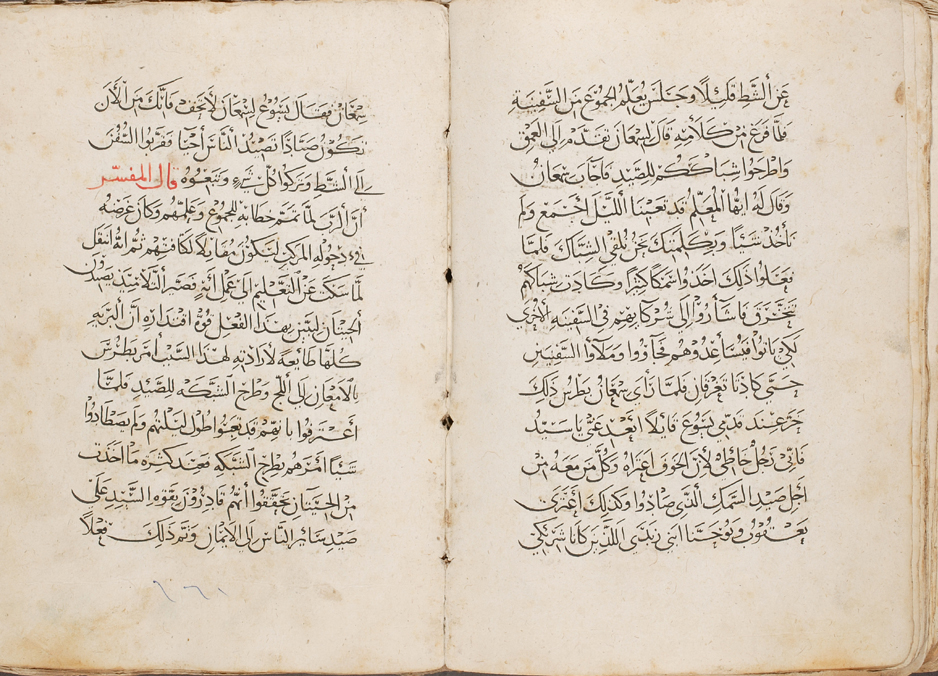 عن الشط قليلاً وجلس يعلم الجموع من السفينة
فلما فرغ من كلامه قال لسمعان تقدم الى العمق
واطرحوا شباككم للصيد فاجاب سمعان
وقال له ايها المعلم قد تعبنا الليل اجمع ولم
ناخذ شيئاً وبكلمتك نحن نلقي الشباك فلما
فعلوا ذلك اخذوا سمكًا كثيرًا وكادت شباكهم
تتخرق فاشاروا الى شركايهم في السفينه الاخرى
لكي ياتوا فيساعدوهم فجاؤوا وملأوا السفينتين
حتى كادتا تغرقان فلما راى سمعان بطرس ذلك
خر عند قدمي يسوع قايلاً ابعد عني يا سيد
فاني رجل خاطي لان الخوف اعتراه وكل من معه من
اجل صيد السمك الذي صادوا وكذلك اعترى
يعقوب ويوحنا ابني زبدى اللذين كانا شريكي
سمعان فقال يسوع لسمعان لا تخف فانك من الان
تكون صيادًا تصيد الناس احيا فقربوا السفن
الى الشط وتركوا كل شيء وتبعوه قال المفسر
ان الرب لما تمم خطابه للجموع وعلمهم وكان غرضه
في دخوله المركب لتكون مقابلاً لكافتهم ثم انه انتقل
لما سكت عن التعليم الى عمل انه صير التلاميذ يصيدون
الحيتان ليبين بهذا الفعل قوة اقتداره ان البريه
كلها طايعه لارادته لهذا السبب امر بطرس
بالامعان الى اللج وطرح الشبكه للصيد فلما
اعترفوا بانهم قد تعبوا طول ليلتهم ولم يصطادوا
شيئًا امرهم بطرح الشبكه فعند كثره ما اخذت
من الحيتان تحققوا انهم قادرون بقوه السيد على
صيد ساير الناس الى الايمان وتم ذلك فعلاً